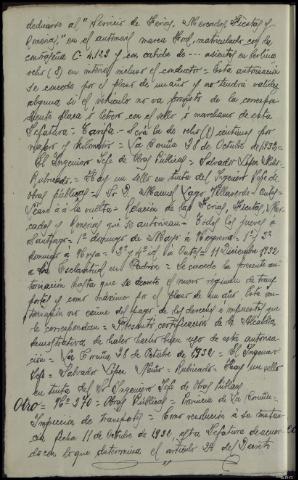 dedicarlo al "Servicio de Ferias, Mercados, Fiestas y
Romerias", en el automóvil marca Ford, matriculado con la
contraseña C-4.122 y con cabida de --- asientos en berlina
ocho (8) en interior incluso el conductor = Esta autorización
se concede por el plazo de un año y no tendrá validez
alguna si el vehiculo no va provisto de la correspon-
diente placa
Jefatura = Tarifa = Será la de ocho (8) céntimos por
viajero y kilómetro = La Coruña 28 de Octubre de 1932 =
El Ingeniero Jefe de Obras Públicas = Salvador López Miño =
Rubricado = Hay un sello en tinta del Ingeniero Jefe de
Obras públicas = Sr. D. Manuel Lago Villaverde =
a la vuelta = Relación de las Ferias, Fiestas, Mer-
cados y Romerias que se autorizan = Todos los jueves a
Santiago = 1º domingo de Mayo a = 1º y 3º
domingo a = 2º y 4º = 11 Diciembre 1932
a La Esclavitud en Padrón = Se concede la presente au-
torización hasta que se decrete el nuevo regimen de trans-
portes y como máximo por el plazo de un año. Esta au-
torización no exime del pago de los derechos e impuestos que
le correspondan = certificación de la Alcaldia
demostrativa de haber hecho buen uso de esta autoriza-
ción = La Coruña 28 de Octubre de 1932 = El Ingeniero
Jefe = Salvador López Miño = Rubricado = Hay un sello
en tinta del Sr. Ingeniero Jefe de Obras Públicas
Otro = Nº 370 = Obras Públicas = Provincia de La Coruña =
Inspección de transportes = Como resolución a su instan-
cia fecha 11 de Octubre de 1932 esta Jefatura de acuer-
do con lo que determina el artículo 24 del